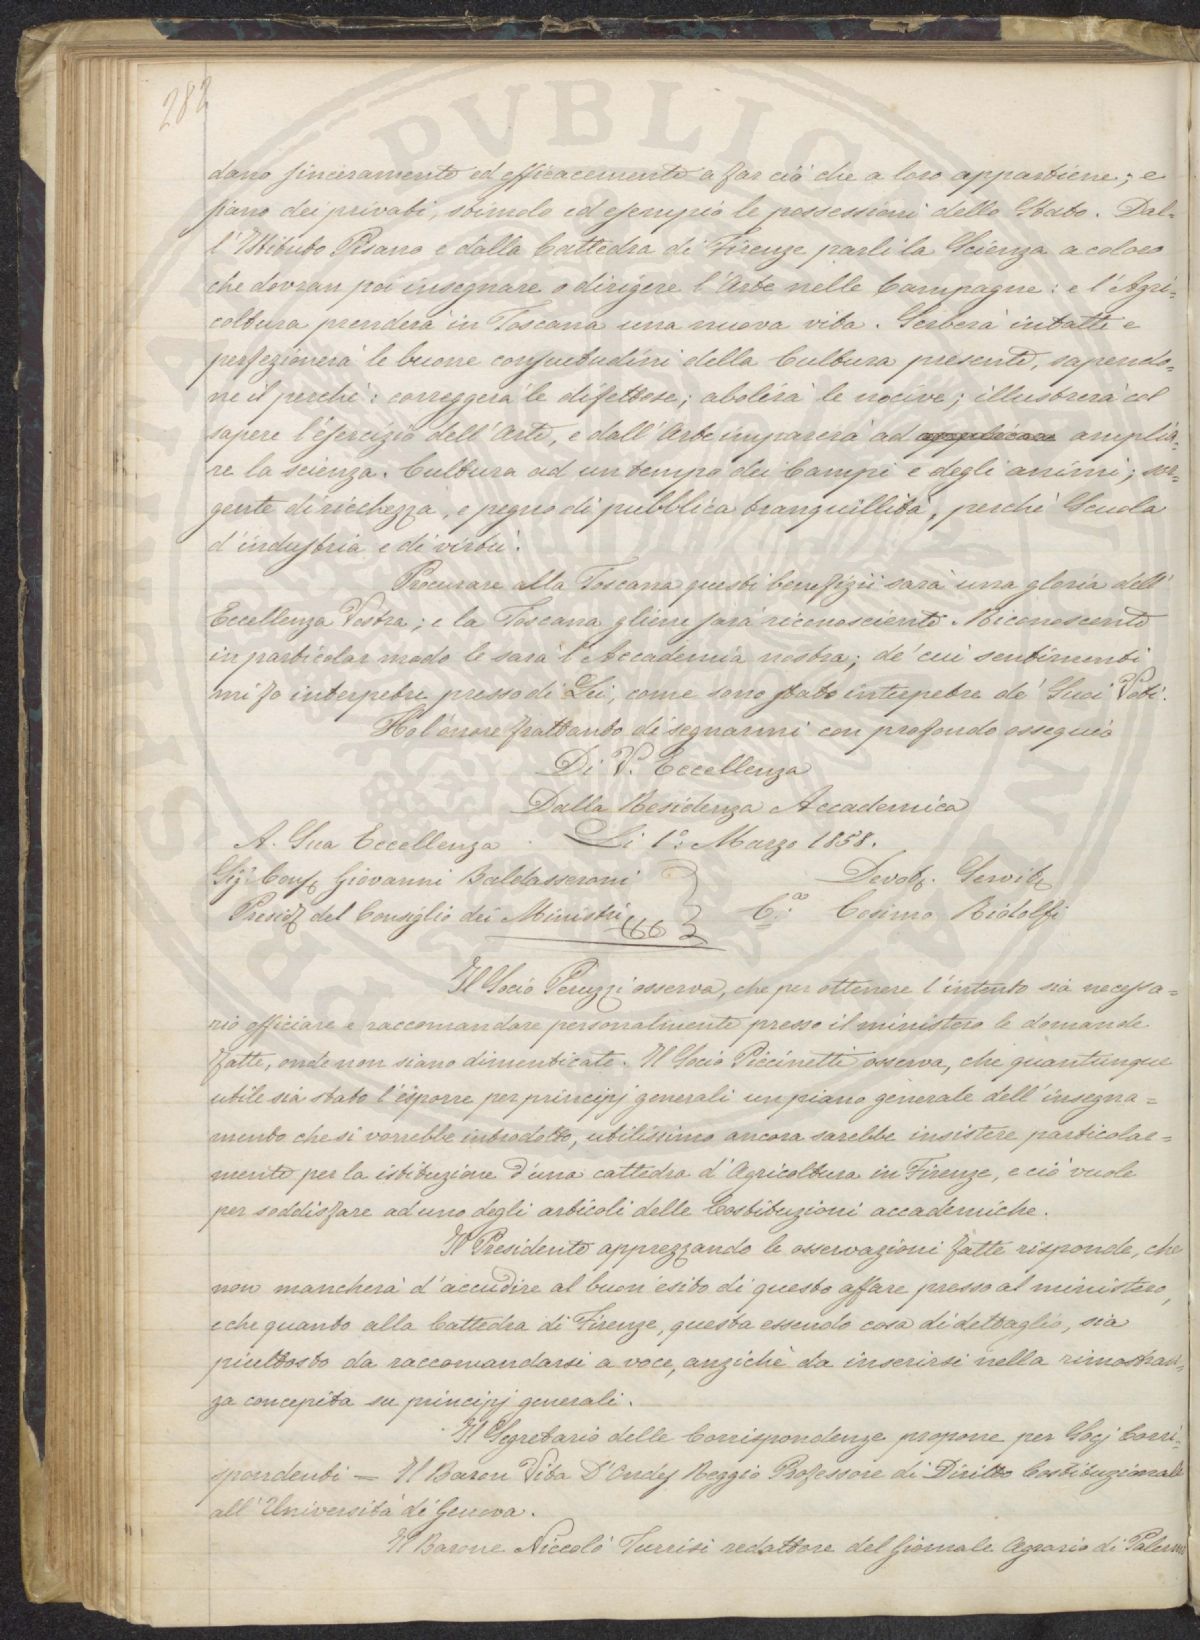 282
dano sinceramente ed efficacemente a far ciò che a loro appartiene; e
siano dei privati, stimolo ed esempio le possessioni dello Stato. Dal=
l'Istituto Pisano e dalla Cattedra di Firenze parli la Scienza a coloro
che dovran poi insegnare o dirigere l'Arte nelle Campagne: e l'Agri=
coltura prenderà in Toscana una nuova vita. Serberà intatte e
perfezionerà le buone consuetudini della Cultura presente, sapendo=
ne il perchè: correggerà le difettose; abolirà le nocive; illustrerà col
sapere l'esercizio dell'Arte, e dall'Arte imparerà ad applicare amplia=
re la scienza. Cultura ad un tempo dei Campi e degli animi; sor=
gente di ricchezza, e pegno di pubblica tranquillità, perchè Scuola
d'industria e di virtù.
Procurare alla Toscana questi benefizii sarà una gloria dell'
Eccellenza Vostra; e la Toscana gliene sarà riconosciente. Riconoscente
in particolar modo le sarà l'Accademia nostra; de' cui sentimenti
mi fo interpetre presso di Lei, come sono stato interpetre de' Suoi Voti.
Ho l'onore frattanto di segnarmi con profondo ossequio
Di V. Eccellenza
Dalla Residenza Accademica
A. Sua Eccellenza Li 1°: Marzo 1858.
Sigr. Conse Giovanni Baldasseroni Devote. Servite
Preside del Consiglio dei Ministri C:° Cosimo Ridolfi
Il Socio Peruzzi osserva, che per ottenere l'intento sia necessa=
rio officiare e raccomandare personalmente presso il ministero le domande
fatte, onde non siano dimenticate. Il Socio Piccinetti osserva, che quantunque
utile sia stato l'esporre per principj generali un piano generale dell'insegna=
mento che si vorrebbe introdotto, utilissimo ancora sarebbe insistere particolar=
mente per la istituzione d'una cattedra d'Agricoltura in Firenze, e ciò vuole
per soddisfare ad uno degli articoli delle Costituzioni accademiche.
Il Presidente apprezzando le osservazioni fatte risponde, che
non mancherà d'accudire al buon esito di questo affare presso al ministero,
e che quanto alla Cattedra di Firenze, questa essendo cosa di dettaglio, sia
piuttosto da raccomandarsi a voce, anzichè da inserirsi nella rimostran=
za concepita su principj generali.
Il Segretario delle Corrispondenze propone per Socj Corri=
spondenti — Il Baron Vita D'Ondes Reggio Professore di Diritto Costituzionale
all'Università di Genova.
Il Barone Niccolò Turrisi redattore del Giornale Agrario di Palermo